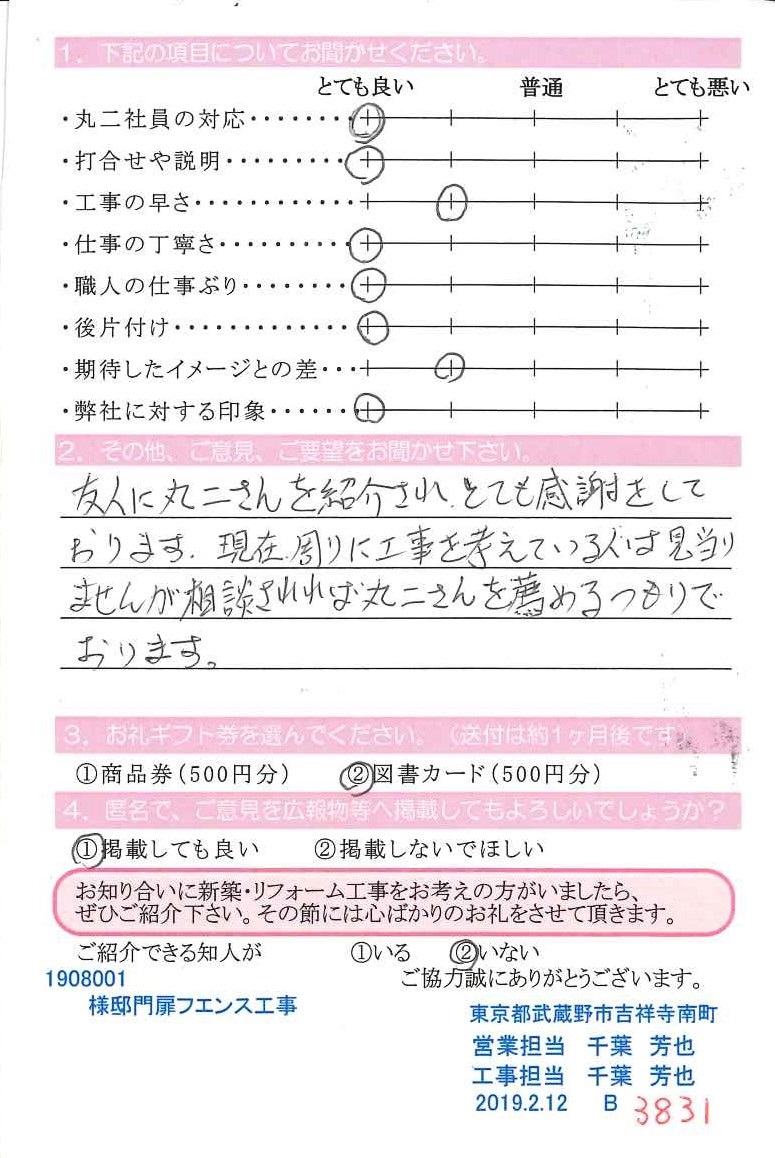 1. 下記の項目についてお聞かせください。
とても良い 普通 とても悪い
・丸二社員の対応・・・・・・・・
・打合せや説明・・・・・・・・・
・工事の早さ・・・・・・・・・・・
・仕事の丁寧さ・・・・・・・・・
・職人の仕事ぶり・・・・・・・・
・後片付け・・・・・・・・・・・・
・期待したイメージとの差・・・
・弊社に対する印象・・・・・・
2. その他、ご意見、ご要望をお聞かせ下さい。
友人に丸二さんを紹介され、とても感謝をして
おります。現在、周りに工事を考えている人は見当り
ませんが相談されれば丸二さんを薦めるつもりで
おります。
3. お礼ギフト券を選んでください。（送付は約1ヶ月後です
①商品券（500円分） ②図書カード（500円分）
4. 匿名で、ご意見を広報物等へ掲載してもよろしいでしょうか？
①掲載しても良い ②掲載しないでほしい
お知り合いに新築・リフォーム工事をお考えの方がいましたら、
ぜひご紹介下さい。その節には心ばかりのお礼をさせて頂きます。
ご紹介できる知人が ①いる ②いない
1908001 ご協力誠にありがとうございます。
様邸門扉フエンス工事
東京都武蔵野市吉祥寺南町
営業担当 千葉 芳也
工事担当 千葉 芳也
2019.2.12 B 3831